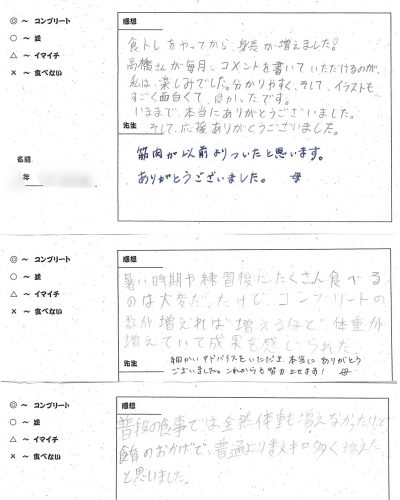 ◎ ～ コンプリート
○ ～ 並
△ ～ イマイチ
× ～ 食べない
名前
年
感想
食トレをやってから、身長が増えました!
高橋さんが毎月、コメントを書いていただけるのが、
私は、楽しみでした。分かりやすく、そして、イラストも
すごく面白くて、良かったです。
いままで、本当にありがとうございました。
そして、応援ありがとうございました。
先生
筋肉が以前よりついたと思います。
ありがとうございました。 母
◎ ～ コンプリート
○ ～ 並
△ ～ イマイチ
× ～ 食べない
感想
暑い時期や練習後に、たくさん食べる
のは大変だったけど、コンプリートの
数が増えれば増えるほど体重が
増えていて成果を感じられた
先生
細かいアドバイスをいただき、本当にありがとう
ございました。これからも努力させます! 母
◎ ～ コンプリート
○ ～ 並
△ ～ イマイチ
× ～ 食べない
感想
普段の食事では全然体重も増えなかったけど
食育のおかげで、普通より数キロ多く増えた
と思いました。